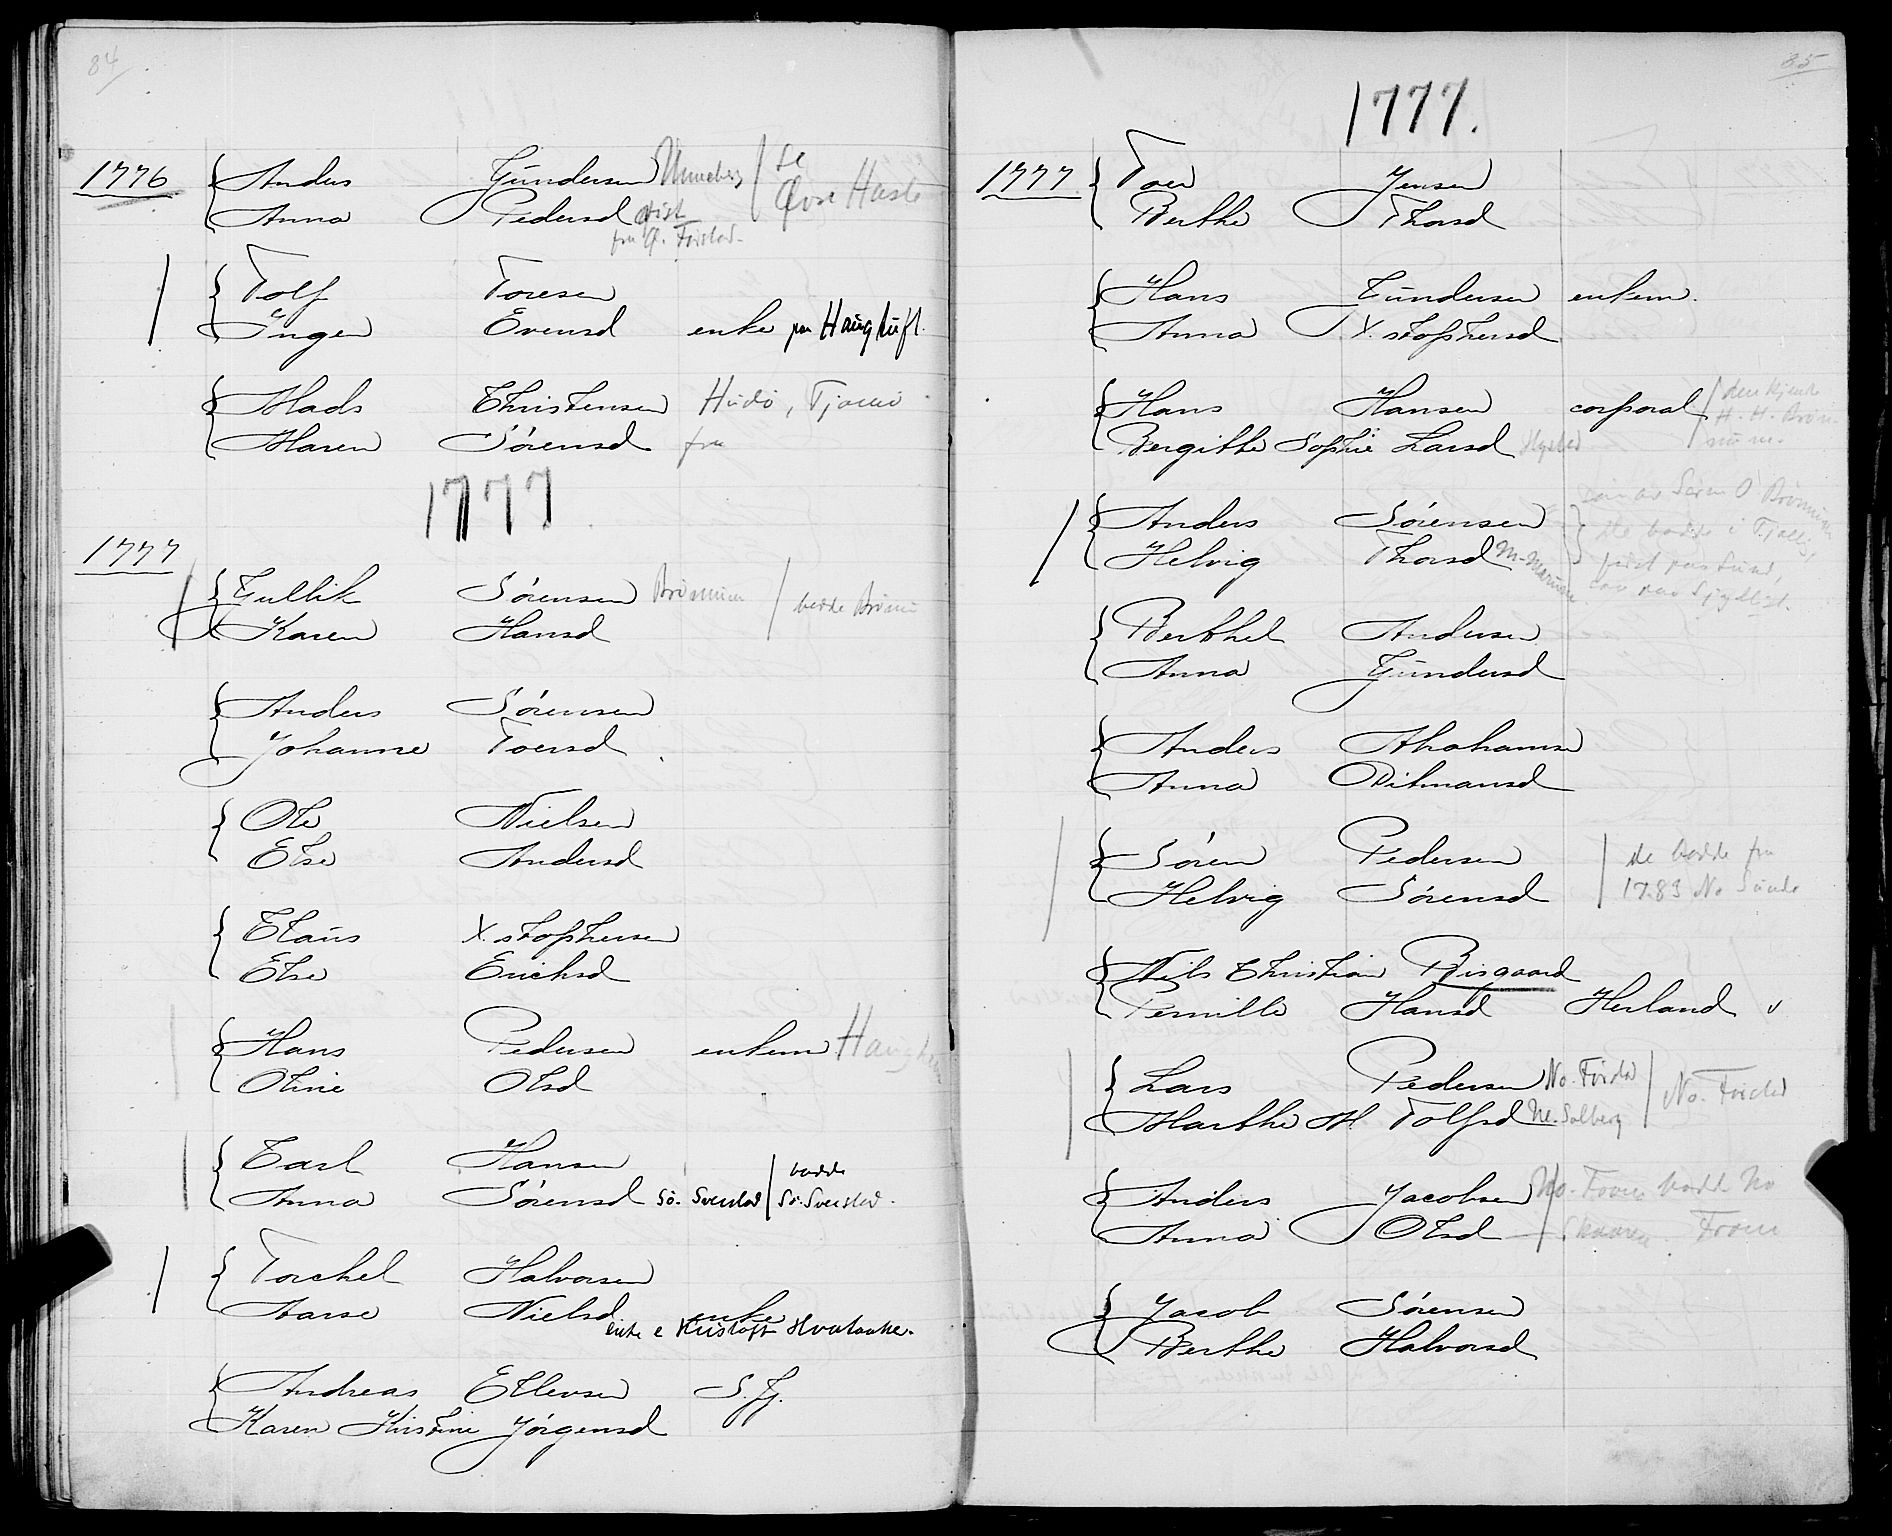 84
1776
Anders Gundersen Unneberg / Se
Anna Pedersd Øvre Hasle
fra Ø. Forstad.
Tolf Toresen
Inger Evensd enke paa Haugtuft.
Mads Christensen Hudø, Tjømø
Maren Sørensd fra
1777
1777
Gullik Sørensen Brønnum / bodde
Karen Hansd
Anders Sørensen
Johanne Toersd
Ole Nielsen
Else Andersd
Claus X.stophersen
Else Erichsd
Hans Pedersen enkem
Oline Olsd
Carl Hansen bodde
Anna Sørensd Sø. Sverstad / Sø. Sverstad.
Torchel Halvorsen
Aasse Nielsd enke
enke e Kristoft Hvalaake.
Andreas Ellevsen S. Fj.
Karen Kirstine Jørgensd
85
1777.
1777
Toer Jensen
Berthe Thorsd
Hans Gundersen enkem.
Anna X.stophersd
Hans Hansen corporal / den kjendte
H. H. Brøn-
num.
Bergithe Sophie Larsd
Anders Sørensen
Helvig Thorsd
bodde i Tjølling,
Berthel Andersen
Anna Gundersd
Anders Abrahamsen
Anna Ditmansd
Søren Pedersen / de bodde fra
Helvig Sørensd 1783 No Sunde
Nils Christian Bisgaard
Pernille Hansd Herland
Lars Pedersen No. Forstad / No. Forstad
Marthe M Tolfsd Ne. Solberg
Anders Jacobsen No. From bodde No
Anna Olsd Skaaren From
Jacob Sørensen
Berthe Halvorsd